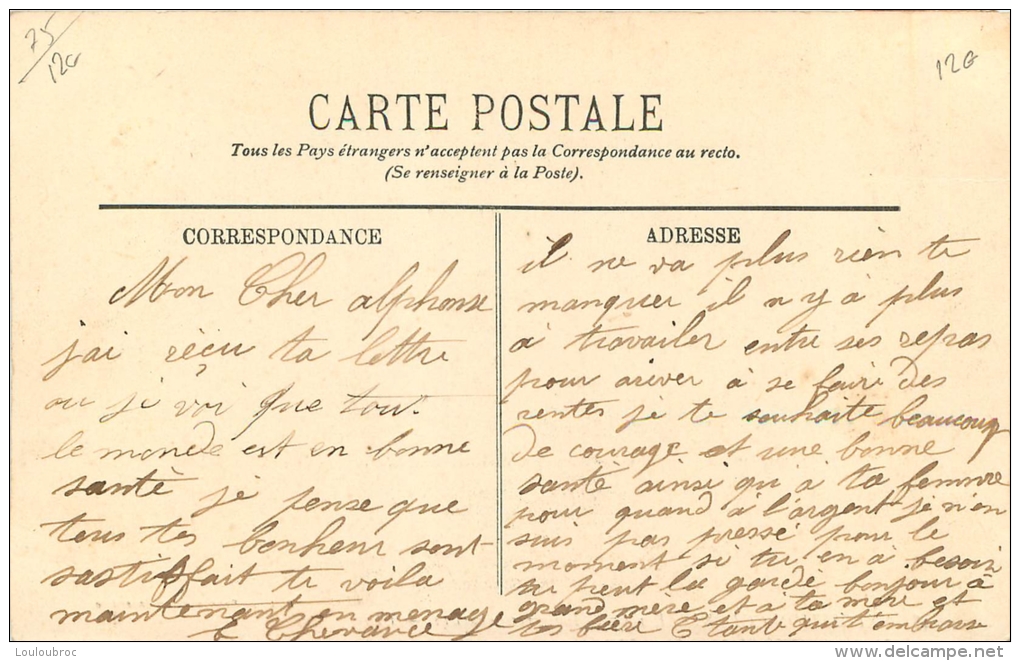 75
12G
12G
CARTE POSTALE
Tous les Pays étrangers n'acceptent pas la Correspondance au recto.
(Se renseigner à la Poste).
CORRESPONDANCE
Mon Cher alphonse
jai réçu ta lettre
ou je voi que tout
le monde est en bonne
santè je pense que
tous tes bonheur sont
sastisffait te voila
maintenant en menage
ADRESSE
il ne va plus rien te
manquer il n y a plus
a travailer entre ses repas
pour ariver a se faire des
rentes je te souhaite beaucoup
de courage et une bonne
santé ainsi qu a ta femme
pour quand à l'argent je n en
suis pas pressé pour le
moment si tu en a besoin
tu peut la garde bonjour a
grand mère et a ta mère et
Louloubroc
delcampe.net